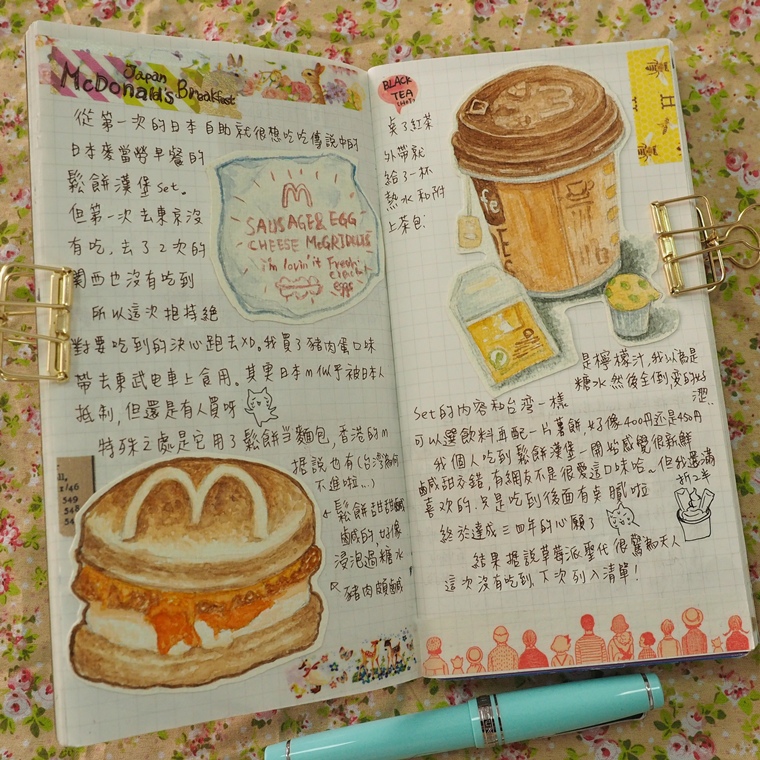 Japan
McDonald's Breakfast
從第一次的日本自助就很想吃吃傳說中的
日本麥當勞早餐的
鬆餅漢堡Set。
但第一次去東京沒
有吃，去了2次的
関西也沒有吃到
所以這次抱持絕
對要吃到的決心跑去XD。我買了豬肉蛋口味
帶去東武电車上食用。其實日本m似乎被日本人
抵制，但還是有人買呀
特殊之處是它用了鬆餅当麵包，香港的m
據說也有(台灣為何
不進啦...)
M
SAUSAGE & EGG
CHEESE McGRIDDLES
i'm lovin' it Fresh
eggs
鬆餅甜甜鹹
鹹的，好像
浸泡過糖水
豬肉頗鹹
BLACK
TEA
(HOT)
点了紅茶
外帶就
給了一杯
熱水和附
上茶包
是檸檬汁，我以為是
糖水 然後全倒 变的好
澀..
Set的內容和台灣一樣
可以選飲料再配一片薯餅，好像400円还是450円
我個人吃到鬆餅漢堡一開始感覺很新鮮
鹹甜不錯，有網友不是很愛這口味哈~但我還滿
喜欢的．只是吃到後面有点膩啦
終於達成三四年的心願了
結果據說草莓派聖代很驚為天人
這次沒有吃到，下次列入清單！